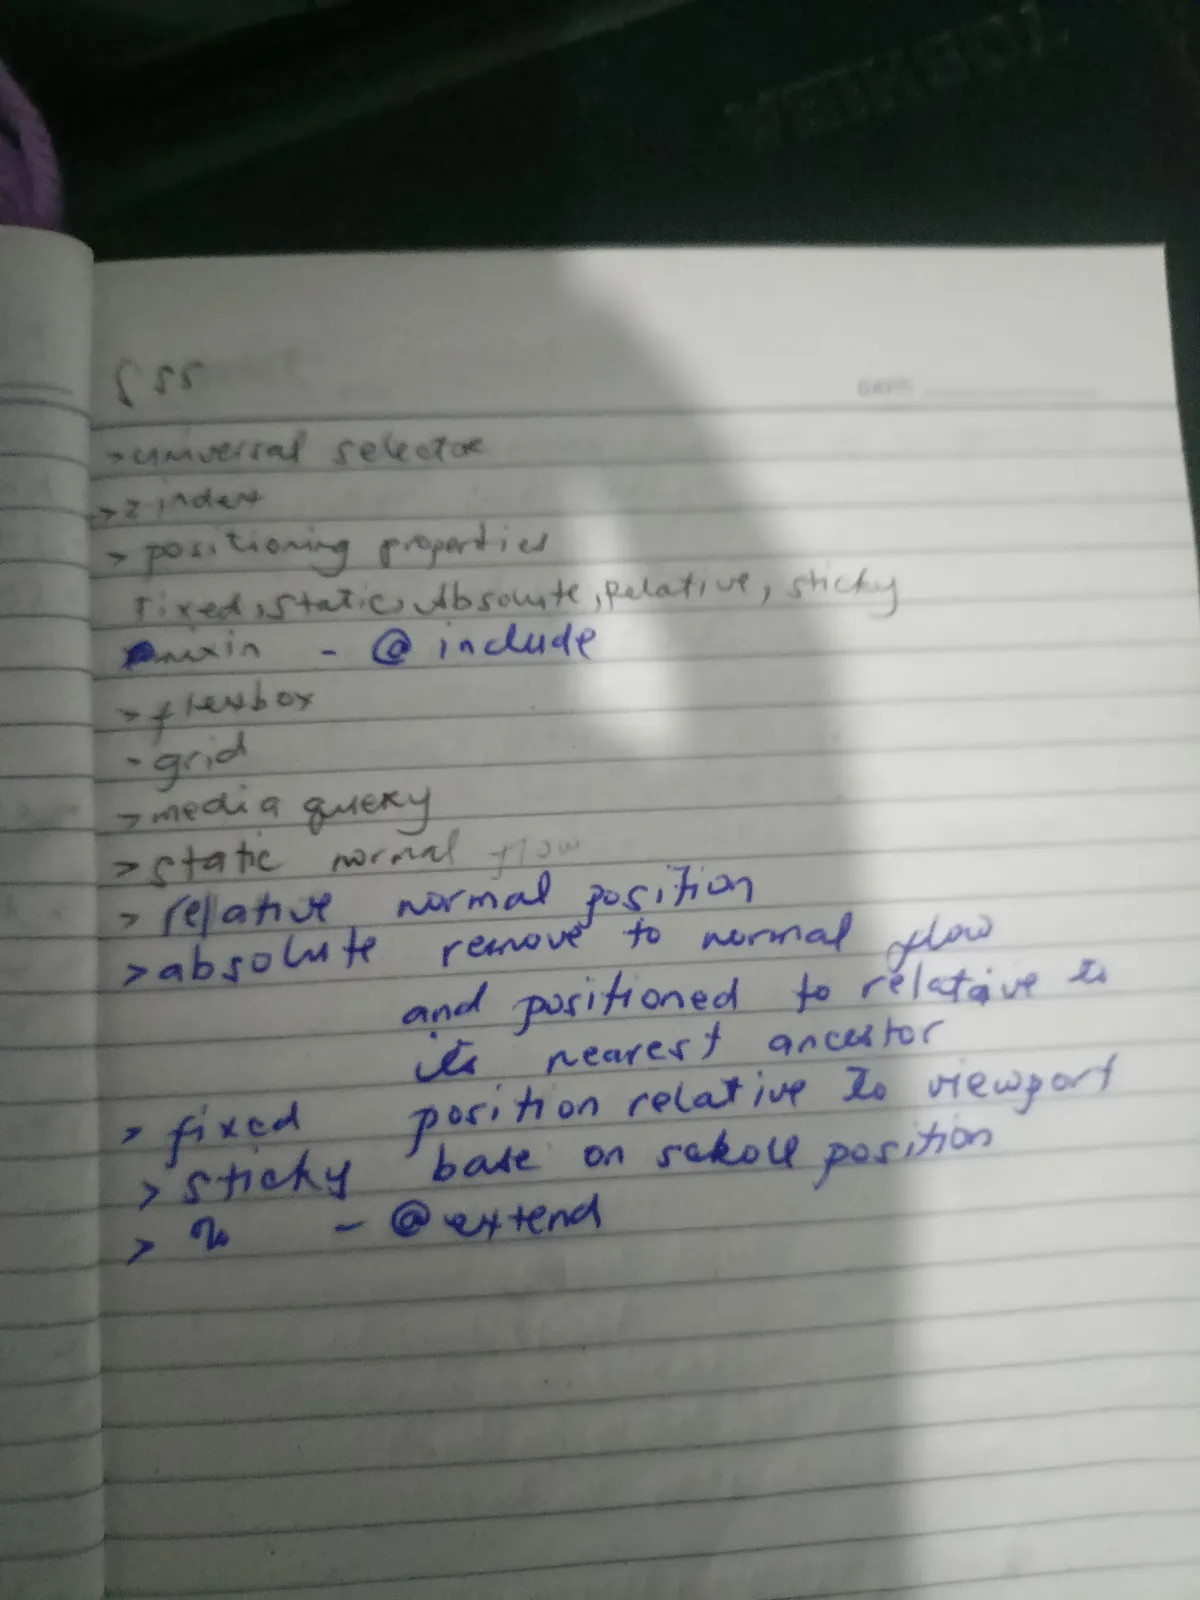 CSS
DATE:
> universal selector
-> z-index
> positioning properties
Fixed, Static, Absolute, Relative, sticky
mixin - @ include
> flexbox
- grid
> media query
> static normal flow
> relative normal position
> absolute remove to normal flow
and positioned to relative to
its nearest ancestor
> fixed position relative to viewport
> sticky base on sckoll position
> % - @ extend